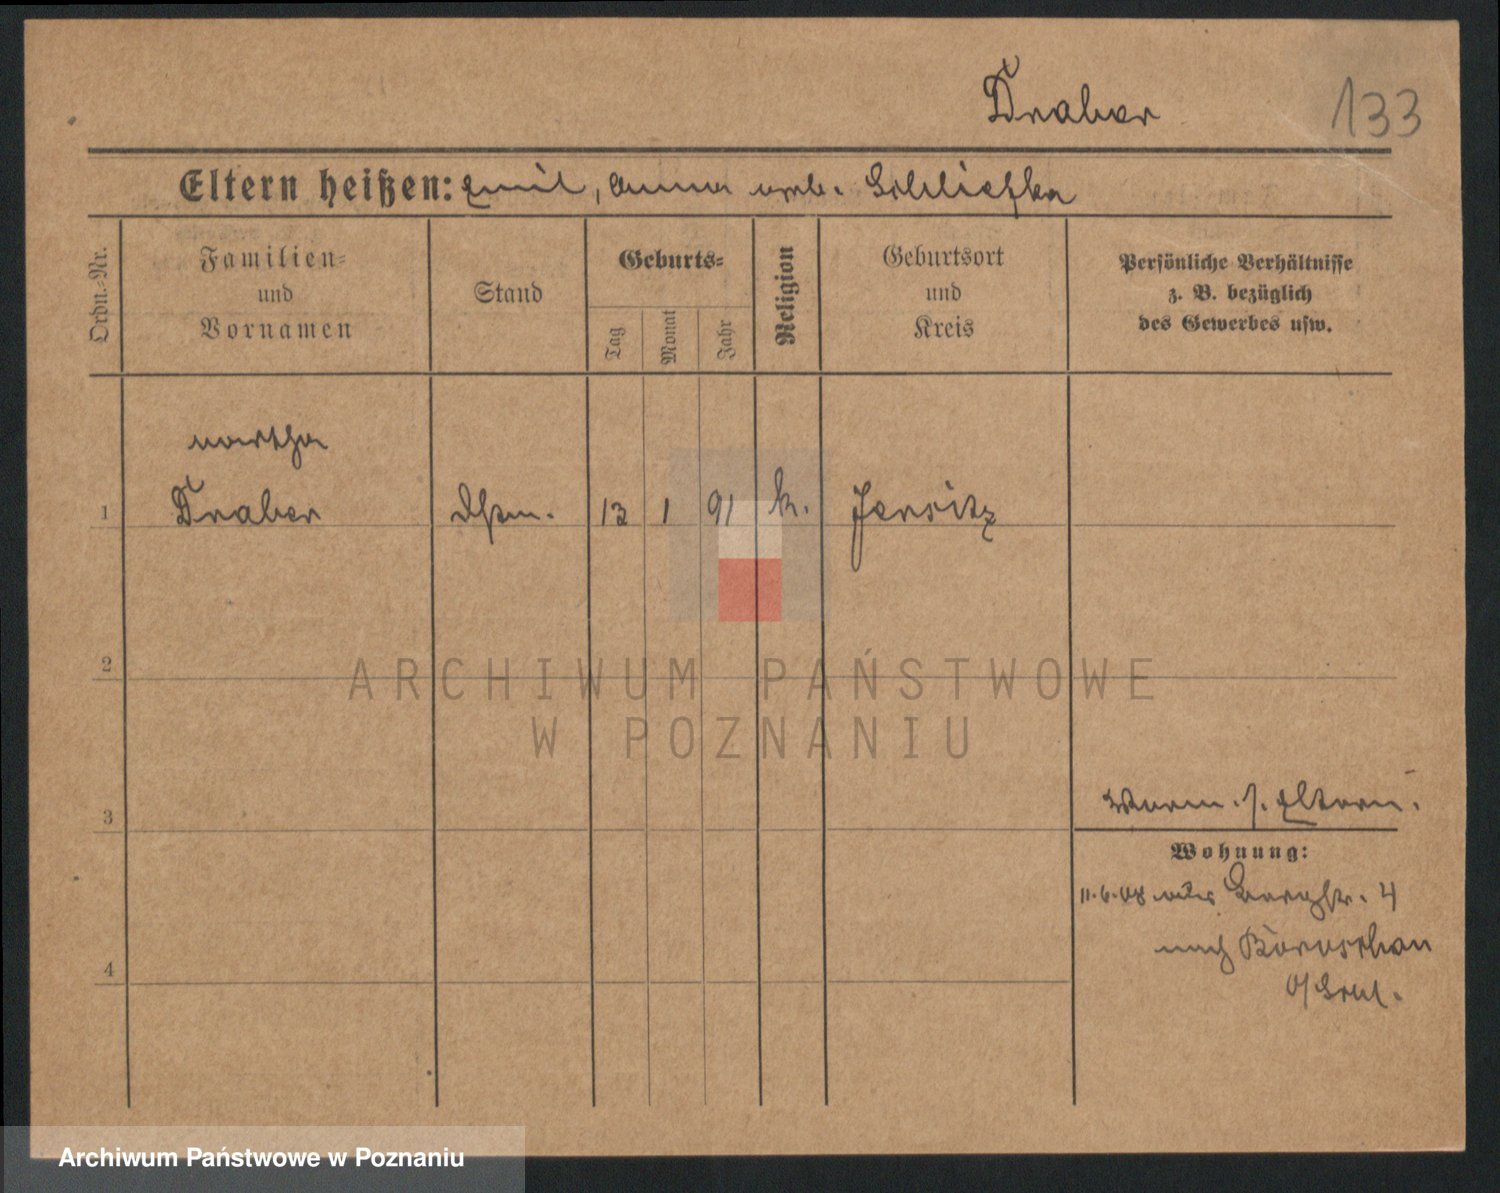 Draber 133
Eltern heißen: Emil, Anna geb. Schlichka
Ordn.-Nr.
Familien-
und
Vornamen
Stand
Geburts-
Tag
Monat
Jahr
Religion
Geburtsort
und
Kreis
Persönliche Verhältnisse
z. B. bezüglich
des Gewerbes usw.
Martha
1 Draber 13 1 91 k. Jersitz
2
3
4
Eltern.
Wohnung:
11.6.08 aus Bergstr. 4
nach
O/Schl.
ARCHIWUM PAŃSTWOWE
W POZNANIU
Archiwum Państwowe w Poznaniu